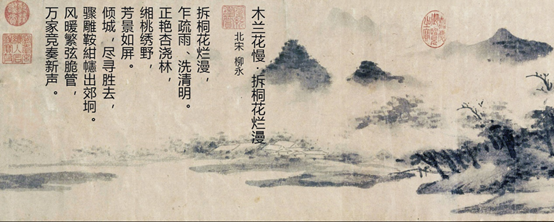 木兰花慢·拆桐花烂漫
北宋 柳永
拆桐花烂漫，
乍疏雨、洗清明。
正艳杏浇林，
缃桃绣野，
芳景如屏。
倾城，尽寻胜去，
骤雕鞍绀幰出郊坰。
风暖繁弦脆管，
万家竞奏新声。